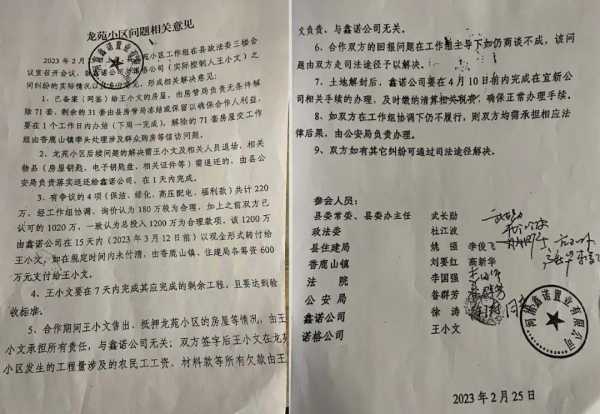 龙苑小区问题相关意见
2023 年 2 月 龙苑小区工作组在县政法委三楼会
议室召开会议, 公司(实际控制人王小文)之
间纠纷的实际情况 形成相关解决意见:
1、已备案(网签)给王小文的房屋,由房管局负责无条件解
除 71 套,剩余的 31 套由县房管局冻结或保留以确保合作人利益,
要在 1 个工作日内办结(下周一完成)。解除的 71 套房屋交工作
组由香鹿山镇牵头处理涉及群众购房等信访问题。
2、龙苑小区后续问题的解决需王小文及相关人员退场,相关
物品(房屋钥匙、电子钥匙盘、相关证件等)需退还的,由县公
安局负责落实返还给鑫诺公司,在 1 天内完成。
3、有争议的 4 项(保洁、绿化、高压配电、福利款)共计 220
万,经工作组协调、询价认为 180 万较为合理,加上之前双方已
认可的 1020 万,一致认为总投入 1200 万为合理款项,该 1200 万
由鑫诺公司在 15 天内(2023 年 3 月 12 日前)以现金形式转付给
王小文,如在规定时间内未付清,由香鹿山镇、住建局各筹资 600
万元支付给王小文。
4、王小文要在 7 天内完成其应完成的剩余工程,且要达到验
收标准。
5、合作期间王小文售出、抵押龙苑小区的房屋等情况,由王
小文承担所有责任,与鑫诺公司无关;双方签字后王小文在龙苑
小区发生的工程量涉及的农民工工资、材料款等所有欠款由王
文负责,与鑫诺公司无关。
6、合作双方的回报问题在工作组主导下如仍商谈不成,该问
题由双方走司法途径予以解决。
7、土地解封后,鑫诺公司要在 4 月 10 日前内完成在宜新公
司相关手续的办理,及时缴纳清算相关税费,确保正常办理手续。
8、如双方在工作组协调下仍不履行,则双方均需承担相应法
律后果,由公安局负责办理。
9、双方如有其它纠纷可通过司法途径解决。
参会人员:
县委常委、县委办主任 武长勋
政法委 杜江波
县住建局 姚强 李俊飞
香鹿山镇 刘要红 商新华
法院 李国强
公安局 昝群芳
鑫诺公司 徐涛
诺格公司 王小文
鑫诺置业有限公司
2023 年 2 月 25 日